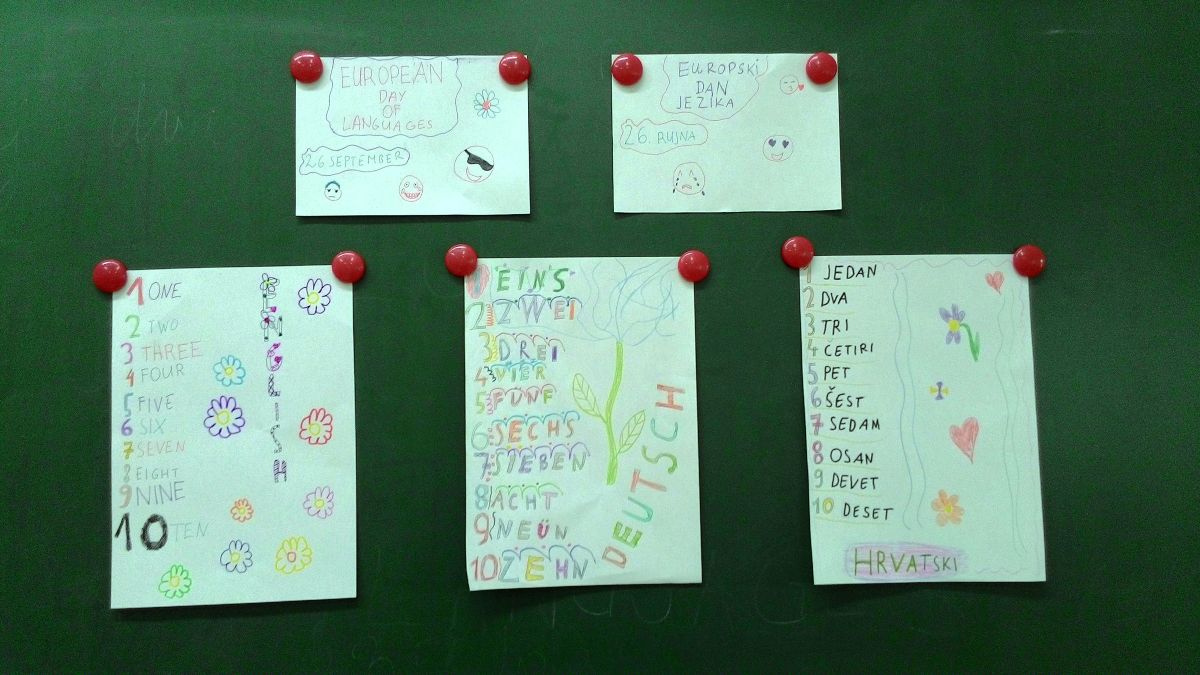 EUROPEAN
DAY
OF
LANGUAGES
26 SEPTEMBER
EUROPSKI
DAN
JEZIKA
26. RUJNA
1 ONE
2 TWO
3 THREE
4 FOUR
5 FIVE
6 SIX
7 SEVEN
8 EIGHT
9 NINE
10 TEN
ENGLISH
1 EINS
2 ZWEI
3 DREI
4 VIER
5 FÜNF
6 SECHS
7 SIEBEN
8 ACHT
9 NEÜN
10 ZEHN
DEUTSCH
1 JEDAN
2 DVA
3 TRI
4 ČETIRI
5 PET
6 ŠEST
7 SEDAM
8 OSAN
9 DEVET
10 DESET
HRVATSKI